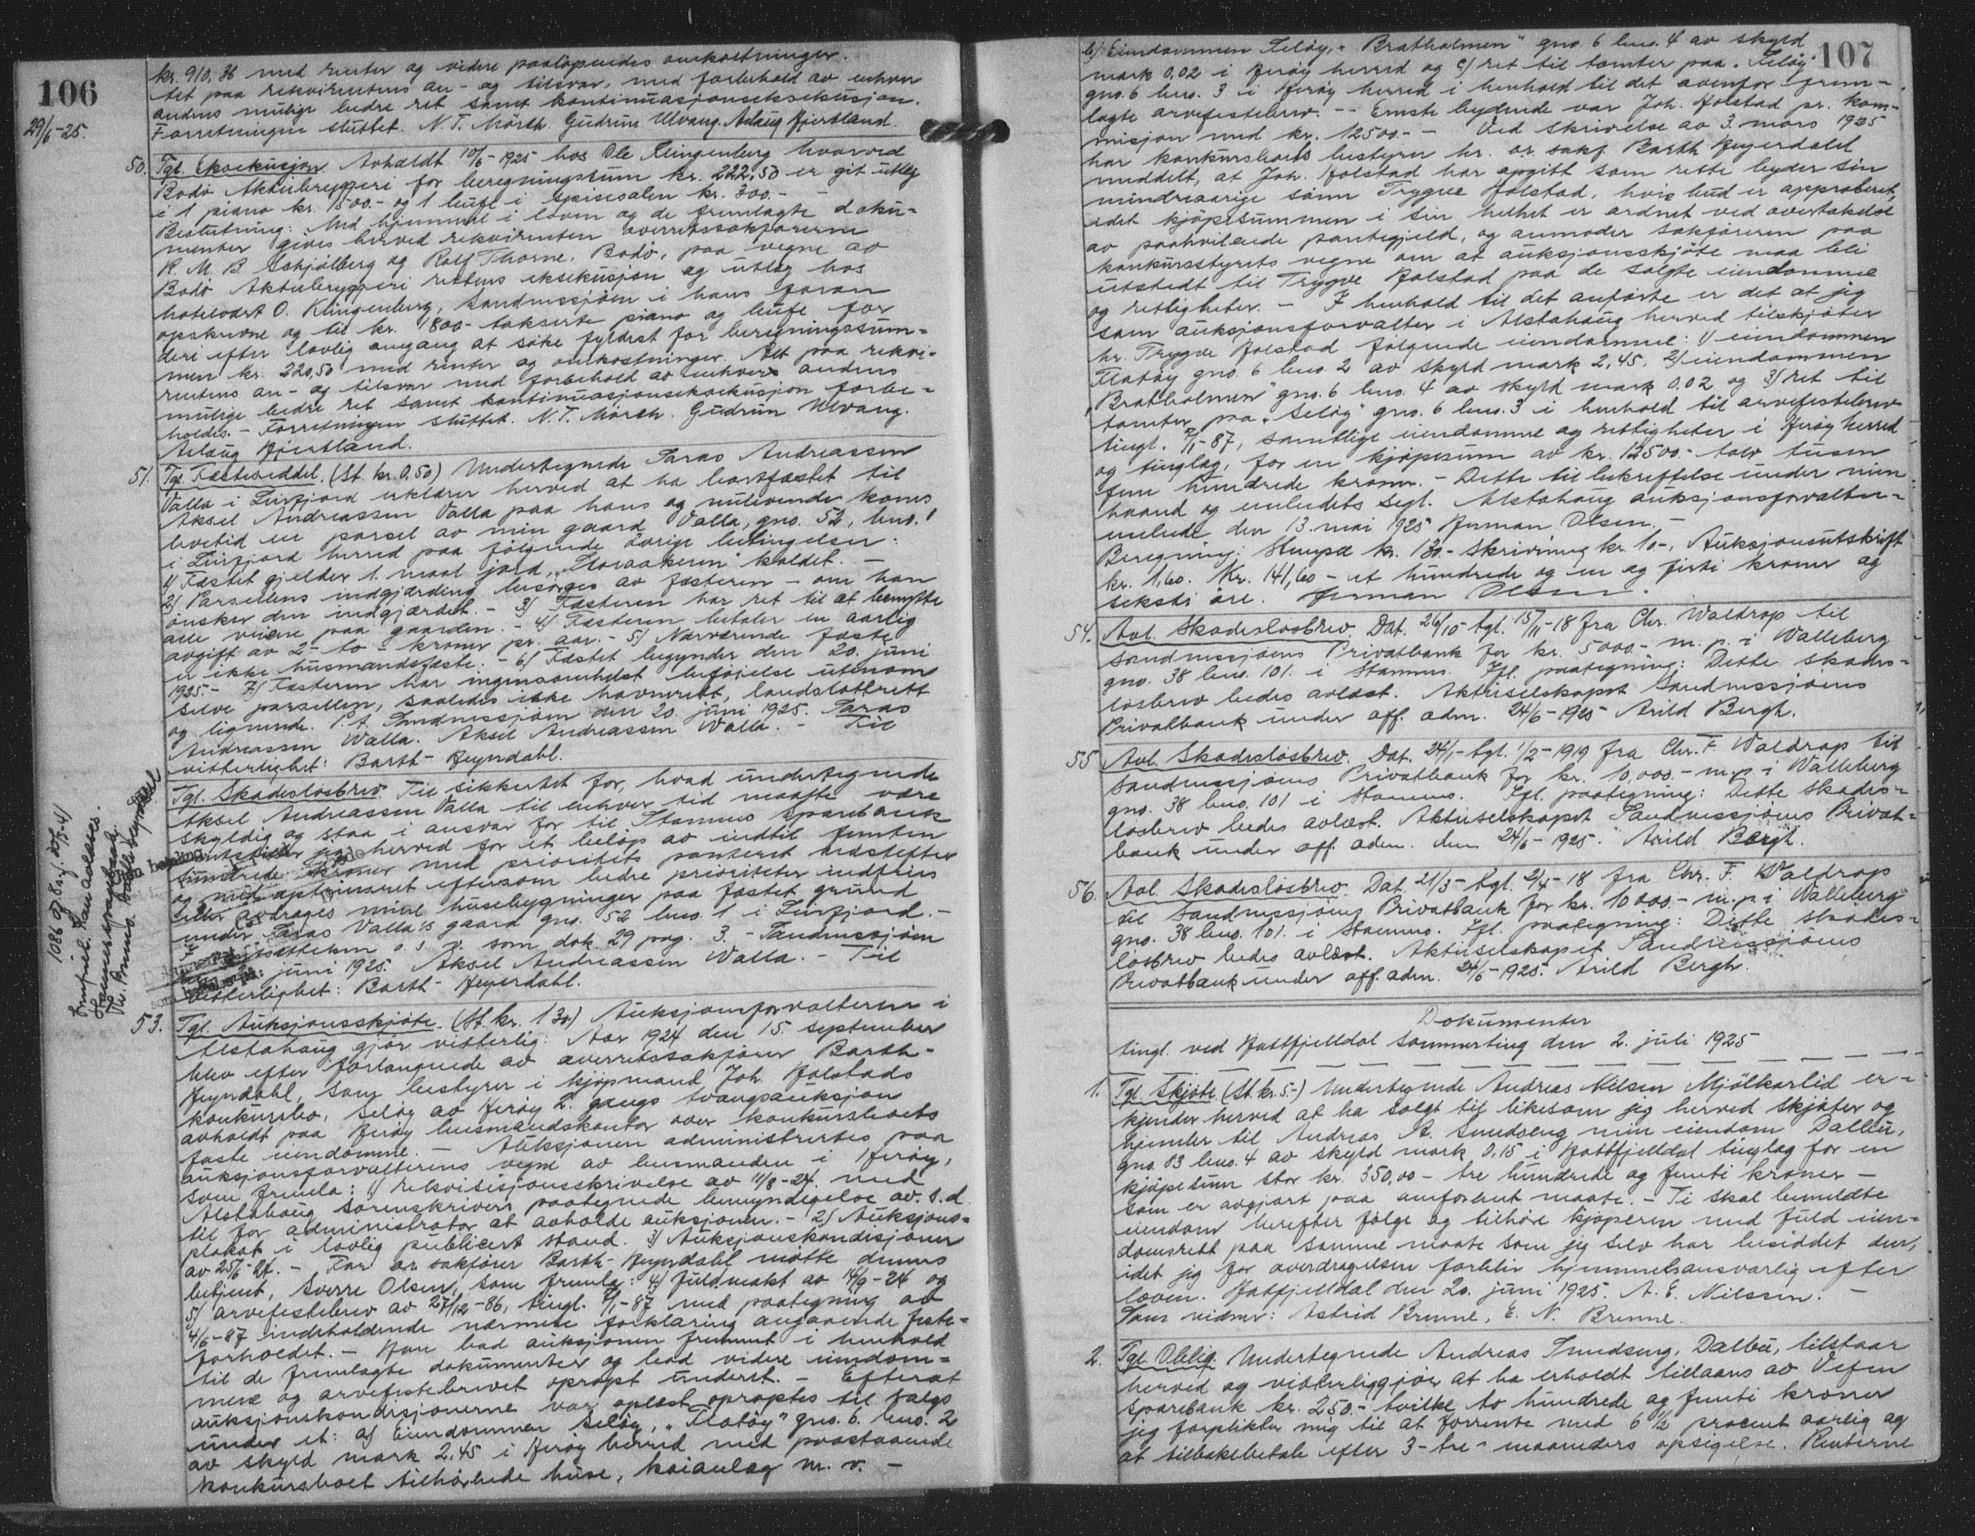 106
29/6-25
kr. 910,36 med renter og videre paaløpendes omkostninger.
Alt paa rekvirentens an- og tilsvar, med forbehold av enhver
andens mulige bedre ret samt kontinuasjonseksekusjon.
Forretningen sluttet. N. T. Mörch. Gudrun Ulvang. Aslaug Hjertland.
50. Tgl. Eksekusjon Avholdt 10/6-1925 hos Ole Klingenberg hvorved
Bodö Aktiebryggeri for beregningssum kr. 222,50 er git utlæg
i 1 piano kr. 1500.- og 1 bufe i spisesalen kr. 300.-
Beslutning: Med hjemmel i loven og de fremlagte doku-
menter gives herved rekvirenten overretssakförerne
K. M. B. Schjölberg og Rolf Thorne, Bodö, paa vegne av
Bodö Aktiebryggeri rettens eksekusjon og utlæg hos
hotelvært O. Klingenberg, Sandnessjöen i hans foran
opskrevne og til kr. 1800.- takserte piano og bufe for
deri efter lovlig omgang at söke fyldest for beregningssum-
men kr. 220,50 med renter og omkostninger. Alt paa rekvi-
rentens an- og tilsvar med forbehold av enhver andens
mulige bedre ret samt kontinuasjonseksekusjon forbe-
holdes.- Forretningen sluttet. N. T. Mörch. Gudrun Ulvang.
Aslaug Hjertland.
51. Tgl. Fæsteseddel. (St. kr. 0,50) Undertegnede Saras Andreassen
Valla i Leirfjord erklærer herved at ha bortfæstet til
Aksel Andreassen Valla paa hans og nulevende kones
levetid en parsel av min gaard Valla, gno. 52, bno. 1
i Leirfjord herred paa følgende øvrige betingelser:
1) Fæstet gjelder 1 maal jord, "Storaakeren" kaldet. -
2) Parsellens indgjærding besörges av fæsteren - om han
önsker den indgjærdet. - 3) Fæsteren har ret til at benytte
alle veiene paa gaarden. - 4) Fæsteren betaler en aarlig
avgift av 2- to - kroner pr. aar. - 5) Nærværende fæste
er ikke husmandsfæste. - 6) Fæstet begynder den 20. juni
1925.- 7) Fæsteren har ingensomhelst beföielse utenom
selve parsellen, saaledes ikke havneret, landslotteret
og lignende. P.t. Sandnessjöen den 20. juni 1925. Saras
Andreassen Walla. Aksel Andreassen Walla. - Til
vitterlighet: Barth-Heyerdahl.
Tgl. Skadeslösbrev. Til sikkerhet for, hvad undertegnede
Aksel Andreassen Valla til enhver tid maatte være
skyldig og staa i ansvar for til Stamnes Sparebank
pantsetter jeg herved for et beløp av indtil femten
hundrede kroner med prioritet panteret næstefter
og med optrinsret eftersom bedre prioriteter indfries
eller avdrages mine husebygninger paa fæstet grund
under Saras Valla's gaard gno. 52 bno. 1 i Leirfjord.-
o. s. v. som dok. 29 pag. 3. - Sandnessjöen
juni 1925. Aksel Andreassen Walla. - Til
vitterlighet: Barth-Heyerdahl.
53. Tgl. Auksjonsskjöte. (St. kr. 130) Auksjonsforvalteren i
Alstahaug gjör vitterlig: Aar 1924 den 15 september
blev efter forlangende av overretssakförer Barth-
Heyerdahl, som bestyrer i kjöpmand Joh. Holstads
konkursbo, Selöy av Heröy 2. gangs tvangsauksjon
avholdt paa Heröy lensmandskontor over konkursboets
faste eiendomme. - Auksjonen administrertes paa
auksjonsforvalterens vegne av lensmanden i Heröy,
som fremla: 1) rekvisisjonsskrivelse av 11/8-24 med
Alstahaug sorenskriveri paategnede bemyndigelse av s. d.
til for administrator at avholde auksjonen. - 2) Auksjons-
plakat i lovlig publicert stand. 3) Auksjonskondisjoner
av 25/6-24. - For o.r.sakförer Barth-Heyerdahl mötte dennes
betjent, Sverre Olsen, som fremla: 4) Fuldmakt av 14/9-24 og
5) arvefestebrev av 27/12-86, tingl. 7/1-87 med paategning av
4/6-87 indeholdende nærmere forklaring angaaende feste-
forholdet. - Han bad auksjonen fremmet i henhold
til de fremlagte dokumenter og bad videre eiendom-
mene og arvefestebrevet opropt underet. - Efterat
auksjonskondisjonerne var oplæst opraptes til salgs
under et: a) Eiendommen Selöy, "Flatöy" gno. 6. bno. 2
av skyld mark 2,45 i Heröy herred med paastaaende
konkursboet tilhörende huse, kaianlæg m. v. -
107
b) Eiendommen Selöy, "Bratholmen" gno. 6 bno. 4 av skyld
mark 0,02 i Heröy herred og c) ret til tomter paa "Selöy"
gno. 6 bno. 3 i Heröy herred i henhold til det ovenfor frem-
lagte arvefestebrev. -- Eneste bydende var Joh. Holstad pr. kom-
misjon med kr. 12500.- - Ved skrivelse av 3. mars 1925
har konkursboets bestyrer hr. o.r. sakf. Barth Heyerdahl
meddelt, at Joh. Holstad har opgitt som rette byder sin
mindreaarige sönn Trygve Holstad, hvis bud er approberet,
idet kjöpesummen i sin helhet er ordnet ved overtakelse
av paahvilende pantegjeld, og anmoder sakföreren paa
konkursstyrets vegne om at auksjonsskjöte maa bli
utstedt til Trygve Holstad paa de solgte eiendomme
og rettigheter. - I henhold til det anförte er det at jeg
som auksjonsforvalter i Alstahaug herved tilskjöter
hr. Trygve Holstad følgende eiendomme: 1) eiendommen
Flatöy gno. 6 bno. 2 av skyld mark 2,45. 2) eiendommen
"Bratholmen" gno. 6 bno. 4 av skyld mark 0.02 og 3) ret til
tomter paa "Selöy" gno. 6 bno. 3 i henhold til arvefestebrev
tingl. 7/1-87, samtlige eiendomme og rettigheter i Heröy herred
og tinglag, for en kjöpesum av kr. 12500.- tolv tusen
fem hundrede kroner. - Dette til bekræftelse under min
haand og embedets segl. Alstahaug auksjonsforvalter-
embede den 13. mai 1925 Herman Olsen. -
Beregning: Stempel kr. 130.- Skrivning kr. 10.-, Auksjonsutskrift
kr. 1,60. Kr. 141,60 - et hundrede og en og førti kroner og
seksti öre. Herman Olsen.
54. Avl. Skadeslösbrev. Dat. 26/10- tgl. 15/11-18 fra Chr. Waldrop til
Sandnessjöens Privatbank for kr. 5000.- m. p. i Walleberg
gno. 38 bno. 101. i Stamnes. Ifl. paategning: Dette skades-
lösbrev bedes avlæst. Aktieselskapet Sandnessjöens
Privatbank under off. adm. 24/6-1925 Arild Bergh.
55 Avl. Skadeslösbrev. Dat. 24/1- tgl. 1/2-1919 fra Chr. F. Waldrop til
Sandnessjöens Privatbank for kr. 10,000.- m. p. i Walleberg
gno. 38 bno. 101 i Stamnes. Ifl. paategning: Dette skades-
lösbrev bedes avlæst. Aktieselskapet Sandnessjöens Privat-
bank under off. adm. den 24/6-1925. Arild Bergh.
56. Avl. Skadeslösbrev. Dat. 21/3- tgl. 2/4-18 fra Chr. F. Waldrop
til Sandnessjöens Privatbank for kr. 10000.- m. p. i Walleberg
gno. 38 bno. 101. i Stamnes. Ifl. paategning: Dette skades-
lösbrev bedes avlæst. Aktieselskapet Sandnessjöens
Privatbank under off. adm. 24/6-1925. Arild Bergh.
Dokumenter
tingl. ved Hattfjelldal sommerting den 2. juli 1925
1. Tgl. Skjöte (St. kr. 5-) Undertegnede Andreas Nilsen Mjölkarlid er-
kjender herved at ha solgt til likesom jeg herved skjöter og
hjemler til Andreas A. Smedseng min eiendom Dalbu,
gno. 83 bno. 4 av skyld mark 0.15 i Hattfjelldal tinglag for en
kjöpesum stor kr. 350,00 - tre hundrede og femti kroner -
som er avgjort paa omforent maate. - Ti skal bemeldte
eiendom herefter fölge og tilhöre kjöperen med fuld eien-
domsrett paa samme maate som jeg selv har besiddet den,
idet jeg for overdragelsen forblir hjemmelsansvarlig efter
loven. Hatfjelldal den 20. juni 1925. A. E. Nilssen. -
Som vidner: Astrid Brenne, E. N. Brenne.
2. Tgl. Oblig. Undertegnede Andreas Smedseng, Dalbu, tilstaar
herved og vitterliggjör at ha erholdt tillaans av Vefsn
Sparebank kr. 250.- hvilke to hundrede og femti kroner
jeg forplikter mig til at forrente med 6 1/2 procent aarlig og
at tilbakebetale efter 3-tre- maaneders opsigelse. Renterne